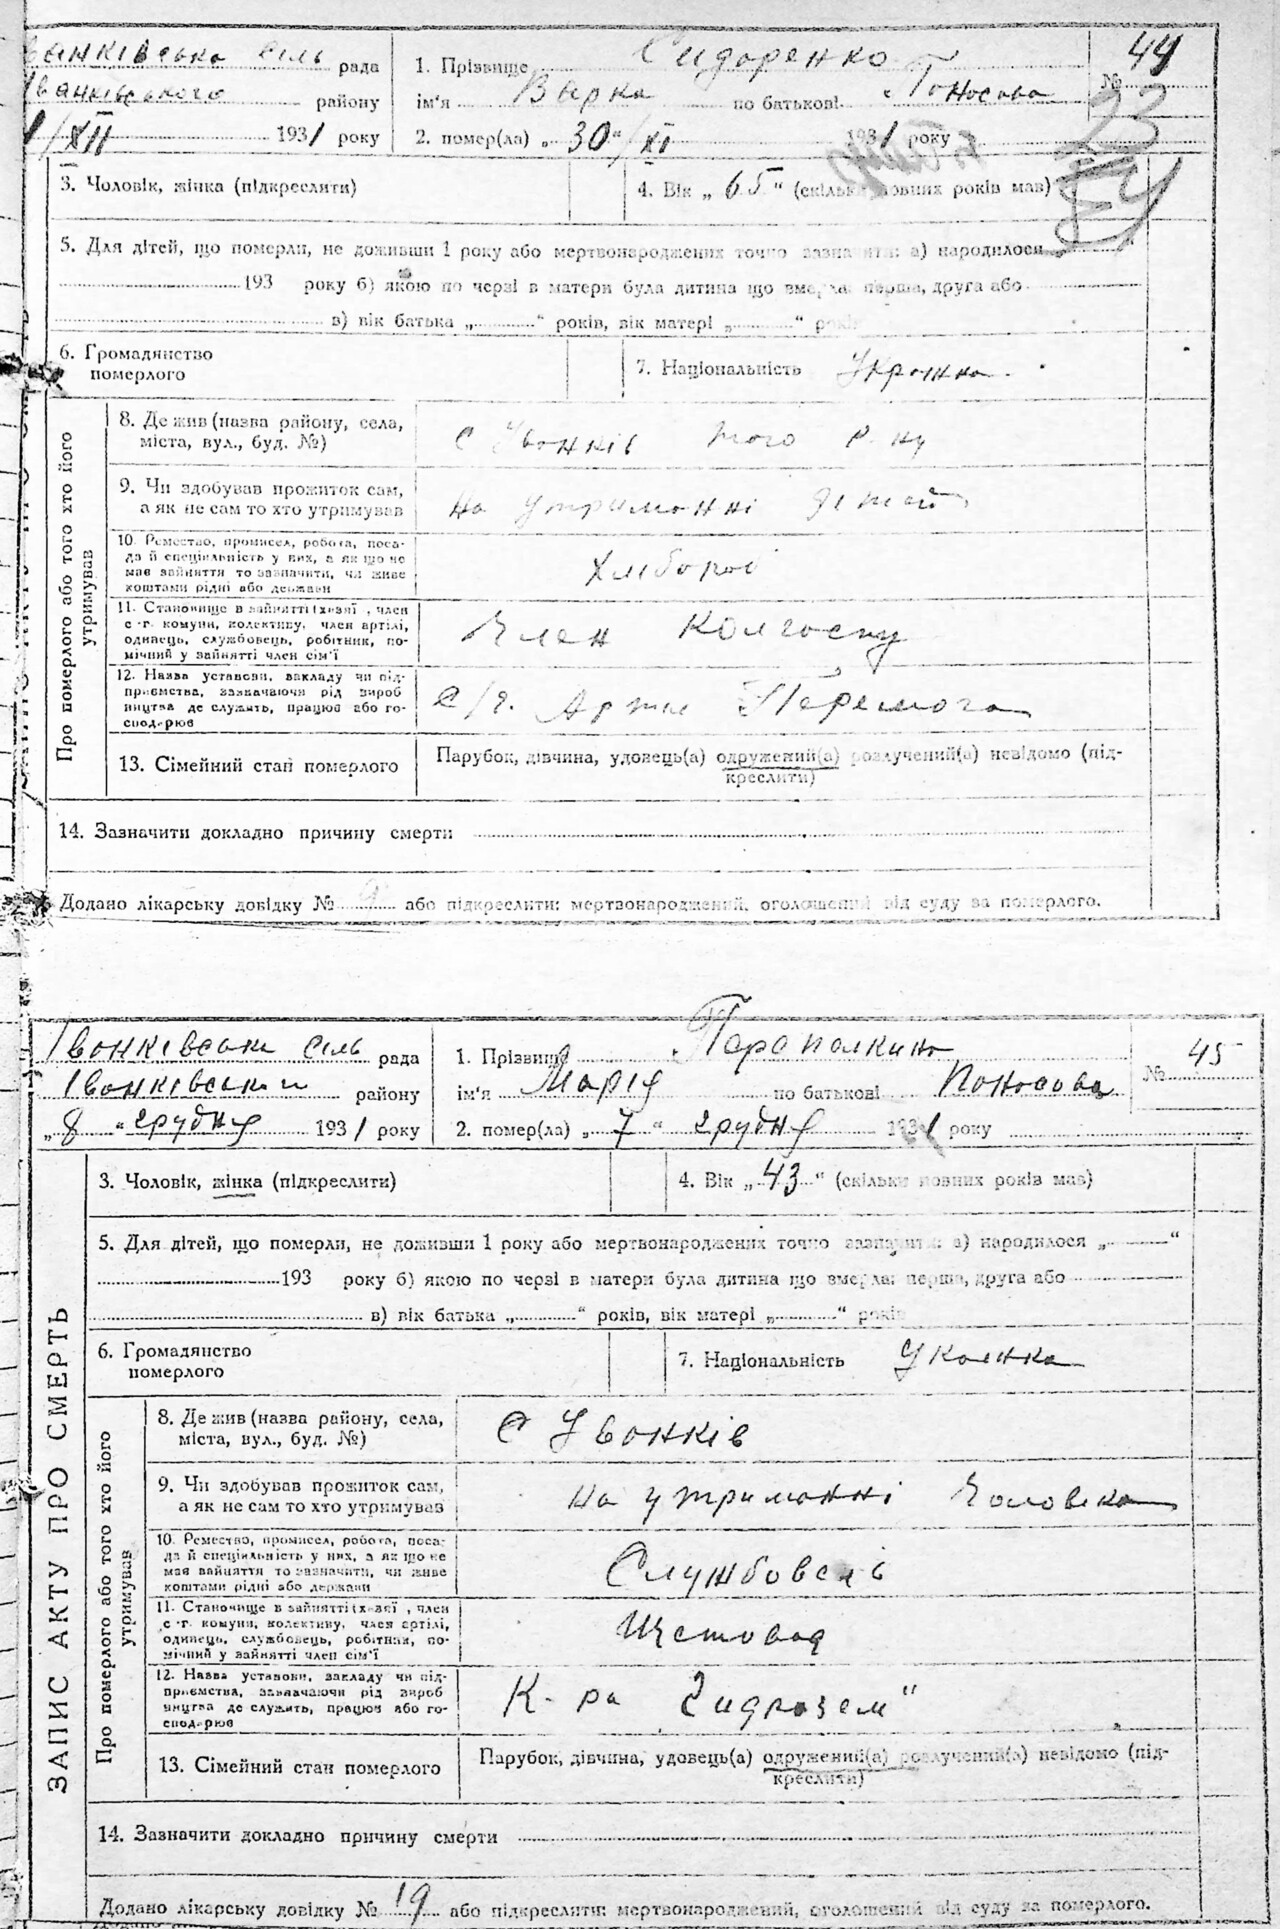 Іванківська сіль рада
Іванківського району
1/XII 1931 року
1. Прізвище Сидоренко
ім'я Варка по батькові Поносова
2. помер(ла) „30“/XI 1931 року
№ 44
23
3. Чоловік, жінка (підкреслити)
4. Вік „65“ (скільки повних років мав)
5. Для дітей, що померли, не доживши 1 року або мертвонароджених точно зазначити: а) народилося
193 року б) якою по черзі в матери була дитина що вмерла: перша, друга або
в) вік батька „ “ років, вік матері „ “ років
6. Громадянство
померлого
7. Національність Укражнка
Про померлого або того хто його
утримував
8. Де жив (назва району, села,
міста, вул., буд. №)
с Івонків того р-ну
9. Чи здобував прожиток сам,
а як не сам то хто утримував
на утриманні дітей
10. Ремество, промисел, робота, поса-
да й спеціяльність у них, а як що не
має зайняття то зазначити, чи живе
коштами рідні або держави
Хлібороб
11. Становище в зайнятті (хазяї, член
с.-г. комуни, колективу, член артілі,
одинець, службовець, робітник, по-
мічний у зайнятті член сім'ї
Член Колгоспу
12. Назва установи, закладу чи під-
приємства, зазначаючи рід вироб
ництва де служить, працює або го-
сподарює
с/г. Артіл Перемога
13. Сімейний стан померлого
Парубок, дівчина, удовець(а) одружений(а) розлучений(а) невідомо (під-
креслити)
14. Зазначити докладно причину смерти
Додано лікарську довідку № 9 або підкреслити: мертвонароджений, оголошений від суду за померлого.
Івонківська сіль рада
Іванківський району
„8“ грудня 1931 року
1. Прізвище Перепелкина
ім'я Марія по батькові Поносова
2. помер(ла) „7“ грудня 1931 року
№ 45
3. Чоловік, жінка (підкреслити)
4. Вік „43“ (скільки повних років мав)
5. Для дітей, що померли, не доживши 1 року або мертвонароджених точно зазначити: а) народилося „ “
193 року б) якою по черзі в матери була дитина що вмерла: перша, друга або
в) вік батька „ “ років, вік матері „ “ років
6. Громадянство
померлого
7. Національність Українка
ЗАПИС АКТУ ПРО СМЕРТЬ
Про померлого або того хто його
утримував
8. Де жив (назва району, села,
міста, вул., буд. №)
с Івонків
9. Чи здобував прожиток сам,
а як не сам то хто утримував
на утриманні Чоловіка
10. Ремество, промисел, робота, поса-
да й спеціяльність у них, а як що не
має зайняття то зазначити, чи живе
коштами рідні або держави
Службовець
11. Становище в зайнятті (хазяї, член
с.-г. комуни, колективу, член артілі,
одинець, службовець, робітник, по-
мічний у зайнятті член сім'ї
Щетовод
12. Назва установи, закладу чи під-
приємства, зазначаючи рід вироб
ництва де служить, працює або го-
сподарює
К-ра „Гидрозем“
13. Сімейний стан померлого
Парубок, дівчина, удовець(а) одружений(а) розлучений(а) невідомо (під-
креслити)
14. Зазначити докладно причину смерти
Додано лікарську довідку № 19 або підкреслити: мертвонароджений, оголошений від суду за померлого.